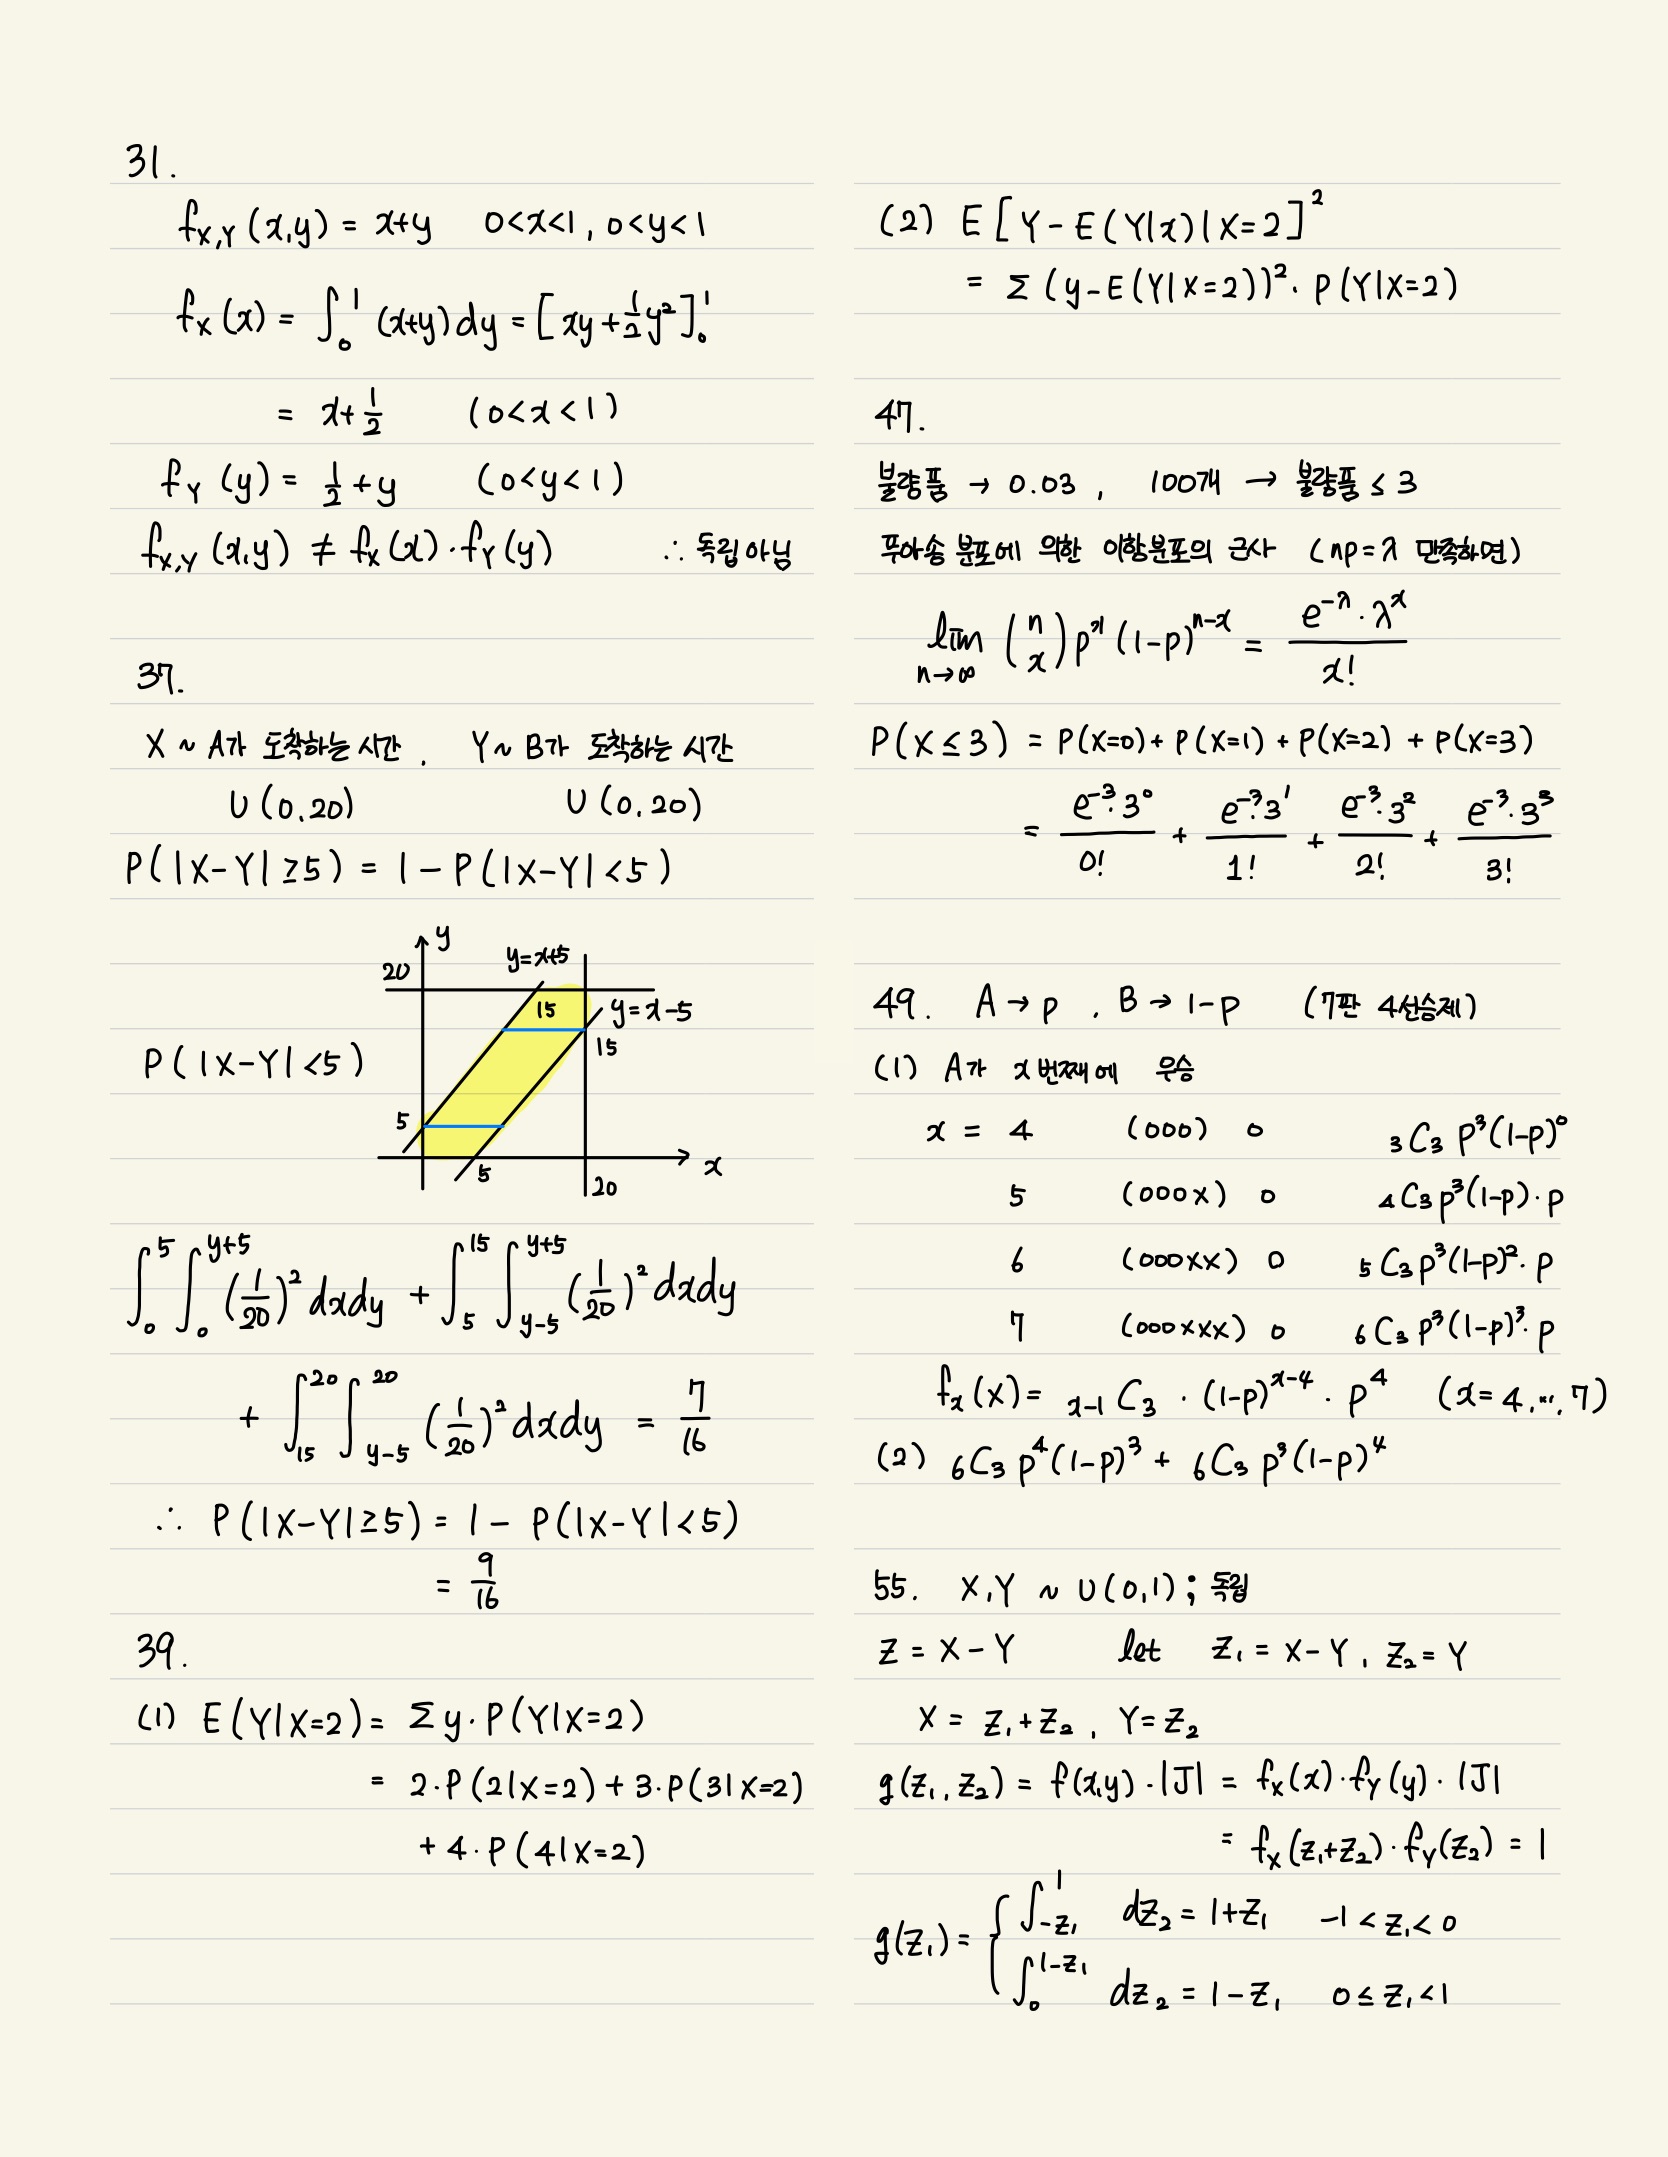 31.
f_{X,Y}(x,y) = x+y 0<x<1, 0<y<1
f_X(x) = ∫_0^1 (x+y)dy = [xy+\frac{1}{2}y²]_0^1
= x+\frac{1}{2} (0<x<1)
f_Y(y) = \frac{1}{2}+y (0<y<1)
f_{X,Y}(x,y) ≠ f_X(x)·f_Y(y) ∴ 독립아님
37.
X ~ A가 도착하는 시간. Y ~ B가 도착하는 시간
U(0.20) U(0.20)
P(|X-Y|≥5) = 1-P(|X-Y|<5)
y
20
y=x+5
15
y=x-5
15
P(|X-Y|<5)
5
x
5
20
∫_0^5 ∫_0^{y+5} (\frac{1}{20})² dxdy + ∫_5^{15} ∫_{y-5}^{y+5} (\frac{1}{20})² dxdy
+ ∫_{15}^{20} ∫_{y-5}^{20} (\frac{1}{20})² dxdy = \frac{7}{16}
∴ P(|X-Y|≥5) = 1- P(|X-Y|<5)
= \frac{9}{16}
39.
(1) E(Y|X=2) = Σy·P(Y|X=2)
= 2·P(2|X=2) + 3·P(3|X=2)
+ 4·P(4|X=2)
(2) E[Y-E(Y|x)|X=2]²
= Σ(y-E(Y|X=2))²·P(Y|X=2)
47.
불량품 → 0.03, 100개 → 불량품 ≤ 3
푸아송 분포에 의한 이항분포의 근사 (np=λ 만족하면)
\lim_{n→∞} \binom{n}{x} p^x (1-p)^{n-x} = \frac{e^{-λ}·λ^x}{x!}
P(X≤3) = P(X=0)+P(X=1)+P(X=2)+P(X=3)
= \frac{e^{-3}·3^0}{0!} + \frac{e^{-3}·3^1}{1!} + \frac{e^{-3}·3^2}{2!} + \frac{e^{-3}·3^3}{3!}
49. A → p , B → 1-p (7판 4선승제)
(1) A가 x번째에 우승
x = 4 (000) 0 ₃C₃ p³(1-p)⁰
5 (000x) 0 ₄C₃p³(1-p)·p
6 (000xx) 0 ₅C₃p³(1-p)²·p
7 (000xxx) 0 ₆C₃p³(1-p)³·p
f_x(x) = _{x-1}C₃ · (1-p)^{x-4} · p⁴ (x=4,…,7)
(2) ₆C₃ p⁴(1-p)³ + ₆C₃ p³(1-p)⁴
55. X,Y ~ U(0,1) ; 독립
Z = X-Y let Z₁ = X-Y, Z₂ = Y
X = Z₁+Z₂, Y=Z₂
g(Z₁,Z₂) = f(x,y)·|J| = f_X(x)·f_Y(y)·|J|
= f_X(Z₁+Z₂)·f_Y(Z₂) = 1
g(Z₁) = { ∫_{-Z₁}^1 dZ₂ = 1+Z₁ -1<Z₁<0
∫_0^{1-Z₁} dZ₂ = 1-Z₁ 0≤Z₁<1